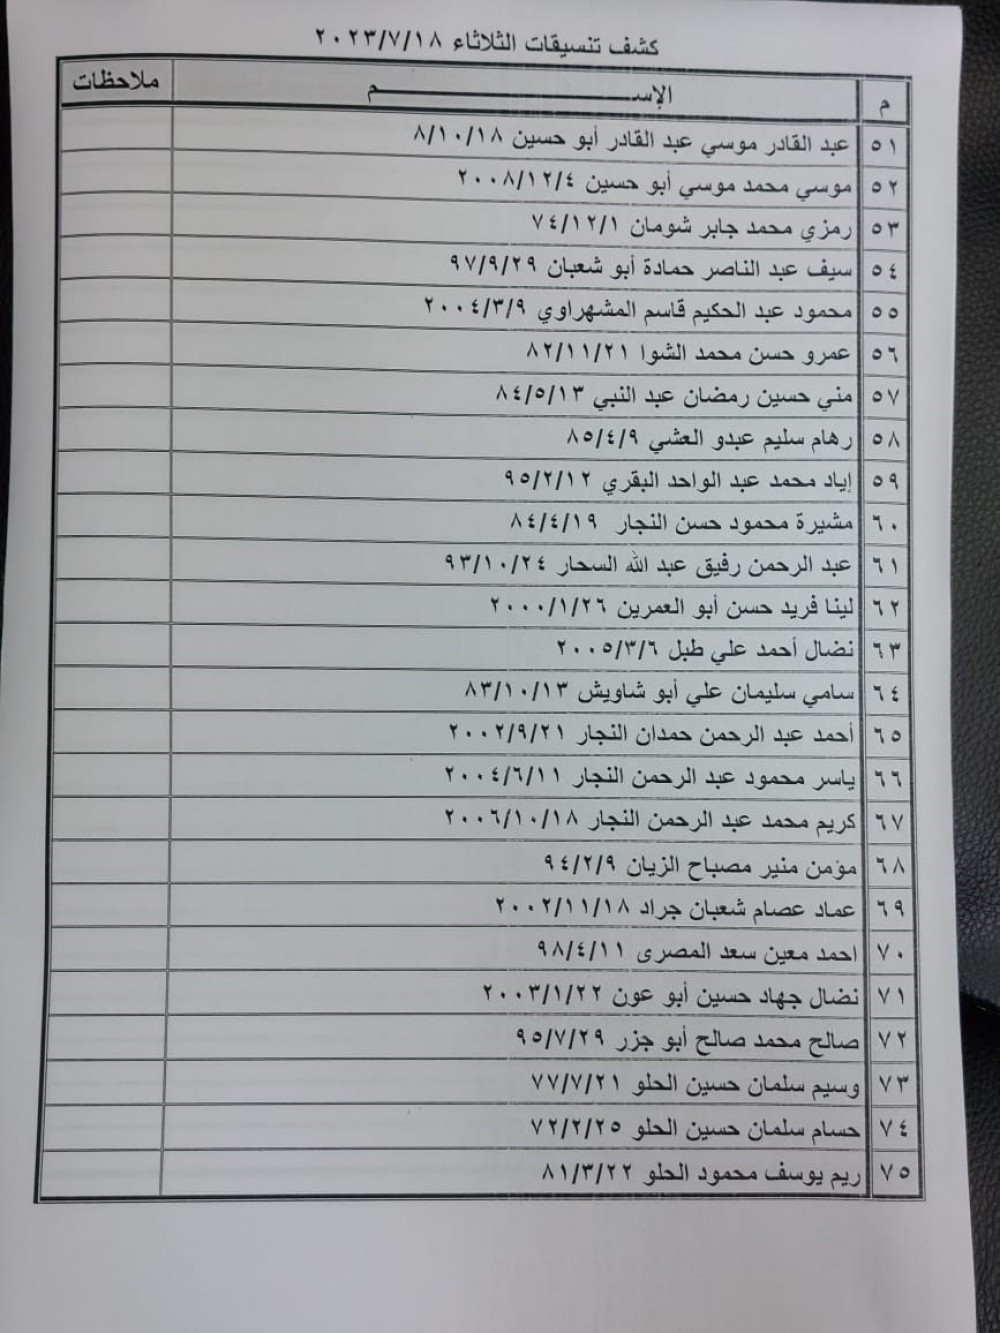 كشف تنسيقات الثلاثاء ٢٠٢٣/٧/١٨
م الإســـــم ملاحظات
٥١ عبد القادر موسي عبد القادر أبو حسين ٨/١٠/١٨
٥٢ موسي محمد موسي أبو حسين ٢٠٠٨/١٢/٤
٥٣ رمزي محمد جابر شومان ٧٤/١٢/١
٥٤ سيف عبد الناصر حمادة أبو شعبان ٩٧/٩/٢٩
٥٥ محمود عبد الحكيم قاسم المشهراوي ٢٠٠٤/٣/٩
٥٦ عمرو حسن محمد الشوا ٨٢/١١/٢١
٥٧ مني حسين رمضان عبد النبي ٨٤/٥/١٣
٥٨ رهام سليم عبدو العشي ٨٥/٤/٩
٥٩ إياد محمد عبد الواحد البقري ٩٥/٢/١٢
٦٠ مشيرة محمود حسن النجار ٨٤/٤/١٩
٦١ عبد الرحمن رفيق عبد الله السحار ٩٣/١٠/٢٤
٦٢ لينا فريد حسن أبو العمرين ٢٠٠٠/١/٢٦
٦٣ نضال أحمد علي طبل ٢٠٠٥/٣/٦
٦٤ سامي سليمان علي أبو شاويش ٨٣/١٠/١٣
٦٥ أحمد عبد الرحمن حمدان النجار ٢٠٠٢/٩/٢١
٦٦ ياسر محمود عبد الرحمن النجار ٢٠٠٤/٦/١١
٦٧ كريم محمد عبد الرحمن النجار ٢٠٠٦/١٠/١٨
٦٨ مؤمن منير مصباح الزيان ٩٤/٢/٩
٦٩ عماد عصام شعبان جراد ٢٠٠٢/١١/١٨
٧٠ احمد معين سعد المصرى ٩٨/٤/١١
٧١ نضال جهاد حسين أبو عون ٢٠٠٣/١/٢٢
٧٢ صالح محمد صالح أبو جزر ٩٥/٧/٢٩
٧٣ وسيم سلمان حسين الحلو ٧٧/٧/٢١
٧٤ حسام سلمان حسين الحلو ٧٢/٢/٢٥
٧٥ ريم يوسف محمود الحلو ٨١/٣/٢٢